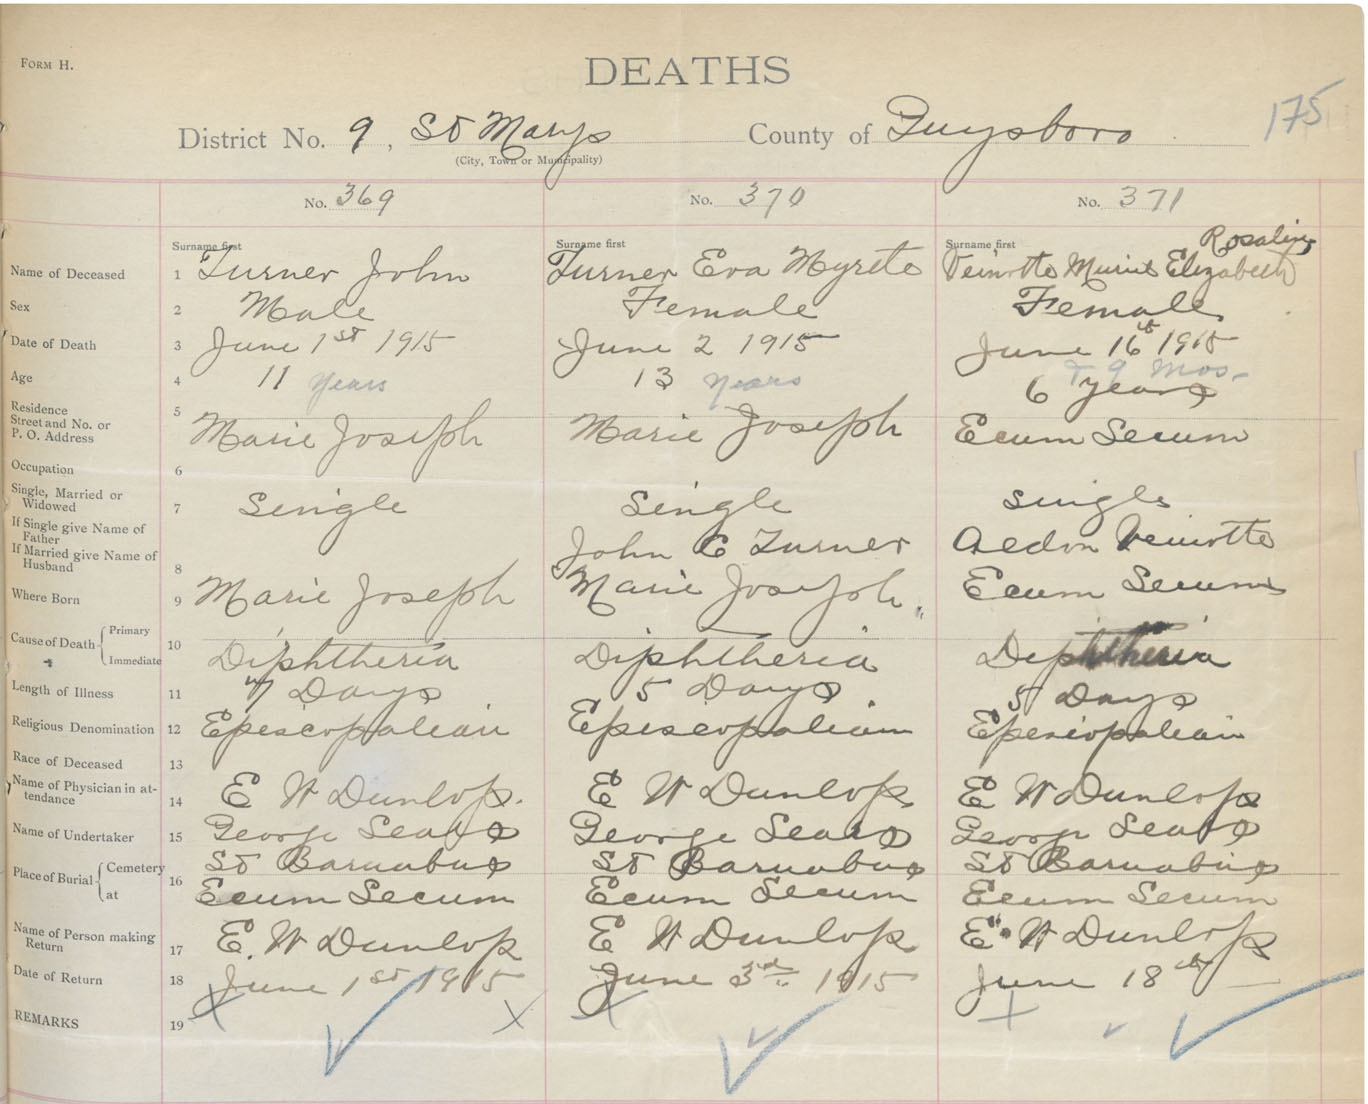 FORM H.
DEATHS
175
District No. 9, St Marys County of Guysboro
(City, Town or Municipality)
No. 369 No. 370 No. 371
Surname first Surname first Surname first Rosaling
Name of Deceased 1 Turner John Turner Eva Myrete Veinotte Muriel Elizabeth
Sex 2 Male Female Female
Date of Death 3 June 1st 1915 June 2 1915 June 16th 1915
Age 4 11 years 13 years 6 years + 9 mos.
Residence Street and No. or P. O. Address 5 Marie Joseph Marie Joseph Ecum Secum
Occupation 6
Single, Married or Widowed 7 Single Single Single
If Single give Name of Father
If Married give Name of Husband 8 John C Turner Aedon Veinotte
Where Born 9 Marie Joseph Marie Joseph. Ecum Secum
Cause of Death { Primary Immediate 10 Diphtheria Diphtheria Diphtheria
Length of Illness 11 7 Days 5 Days 5 Days
Religious Denomination 12 Episcopalian Episcopalian Episcopalian
Race of Deceased 13
Name of Physician in attendance 14 E W Dunlop. E W Dunlop E W Dunlop
Name of Undertaker 15 George Sears George Sears George Sears
Place of Burial { Cemetery at 16 St Barnabus St Barnabus St Barnabus
Ecum Secum Ecum Secum Ecum Secum
Name of Person making Return 17 E. W Dunlop E W Dunlop E. W Dunlop
Date of Return 18 June 1st 1915 June 3rd 1915 June 18th
REMARKS 19